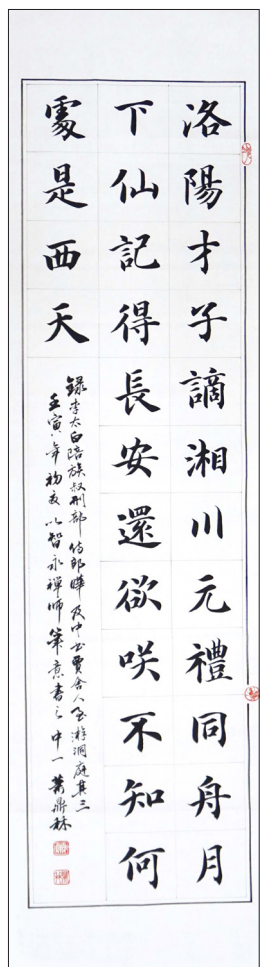 洛陽才子謫湘川元禮同舟月
下仙記得長安還欲咲不知何
處是西天
錄李太白陪族叔刑部侍郎曄及中書賈舍人至游洞庭其三
壬寅年初夏以智永禪師筆意書之中一蕭鼎秝